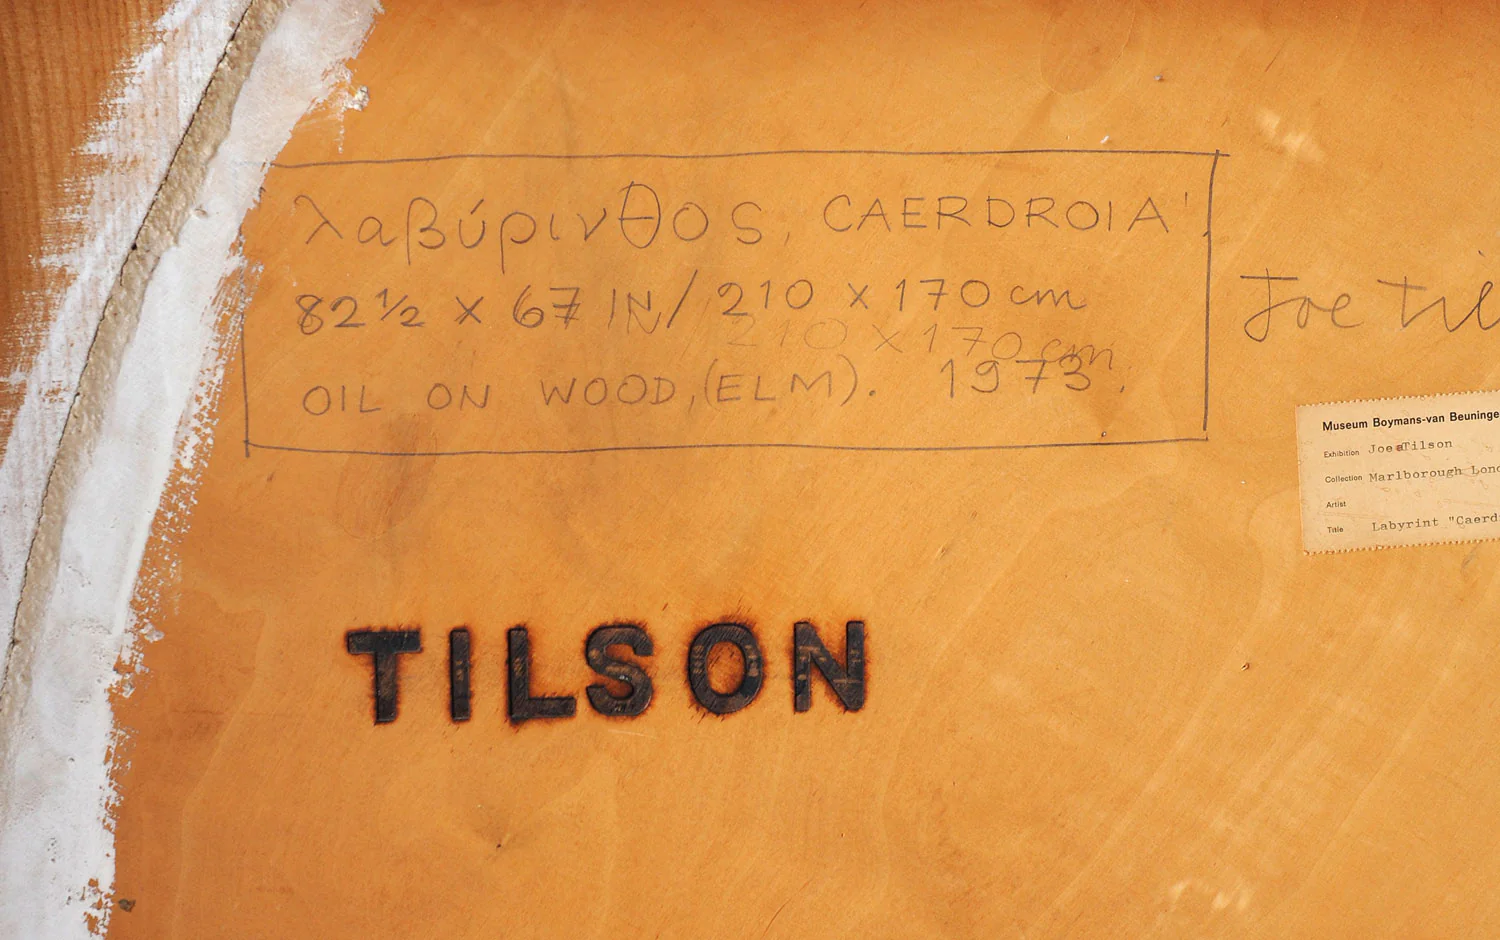 λαβύρινθος, CAERDROIA'.
82 ½ x 67 IN / 210 x 170 cm
210 x 170 cm
OIL ON WOOD, (ELM). 1973.
Joe Til
Museum Boymans-van Beuninge
Exhibition Joe Tilson
Collection Marlborough Lond
Artist
Title Labyrint "Caerd
TILSON